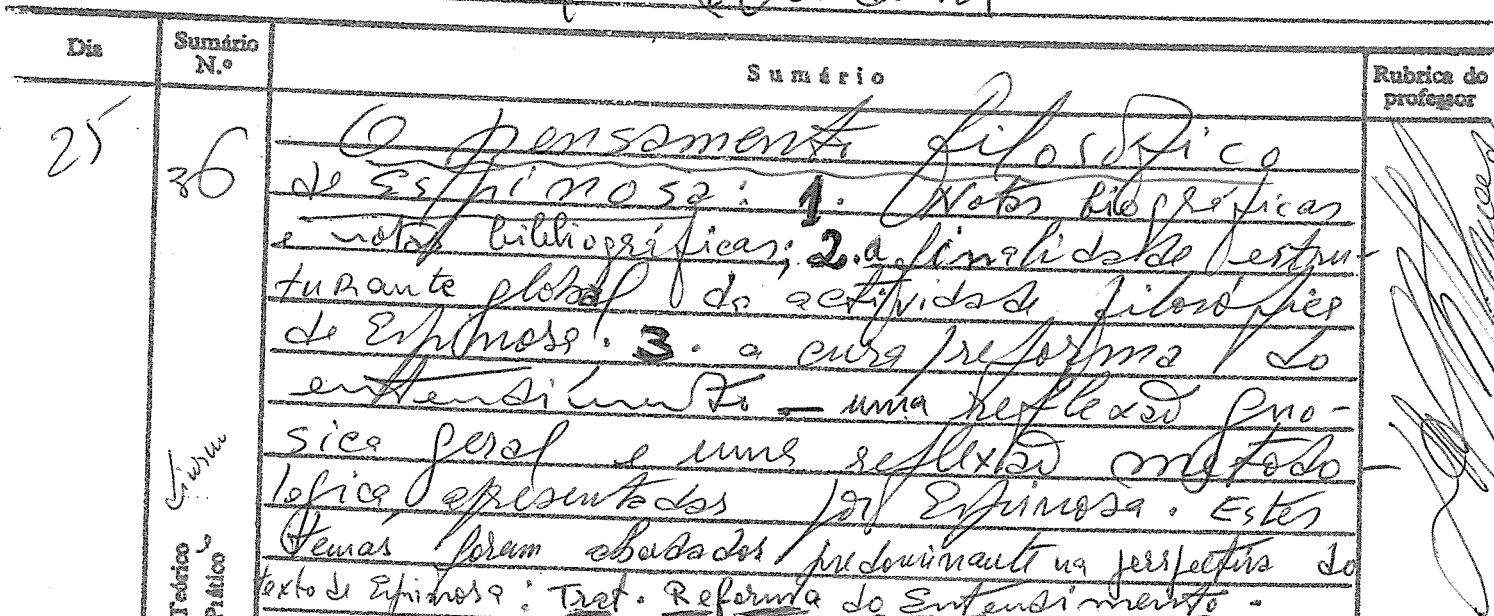 Dia
Sumário N.º
Sumário
Rubrica do professor
25
36
O pensamento filosófico
de Espinosa: 1. Notas biográficas
e notas bibliográficas; 2. a finalidade estru-
turante global da actividade filosófica
de Espinosa. 3. a cura/reforma do
entendimento — uma reflexão gno-
sica geral e uma reflexão metodo-
logica apresentadas por Espinosa. Estes
temas foram abordados predominante na perspectiva do
texto de Espinosa: Trat. Reforma do Entendimento.
Teórico
Prático